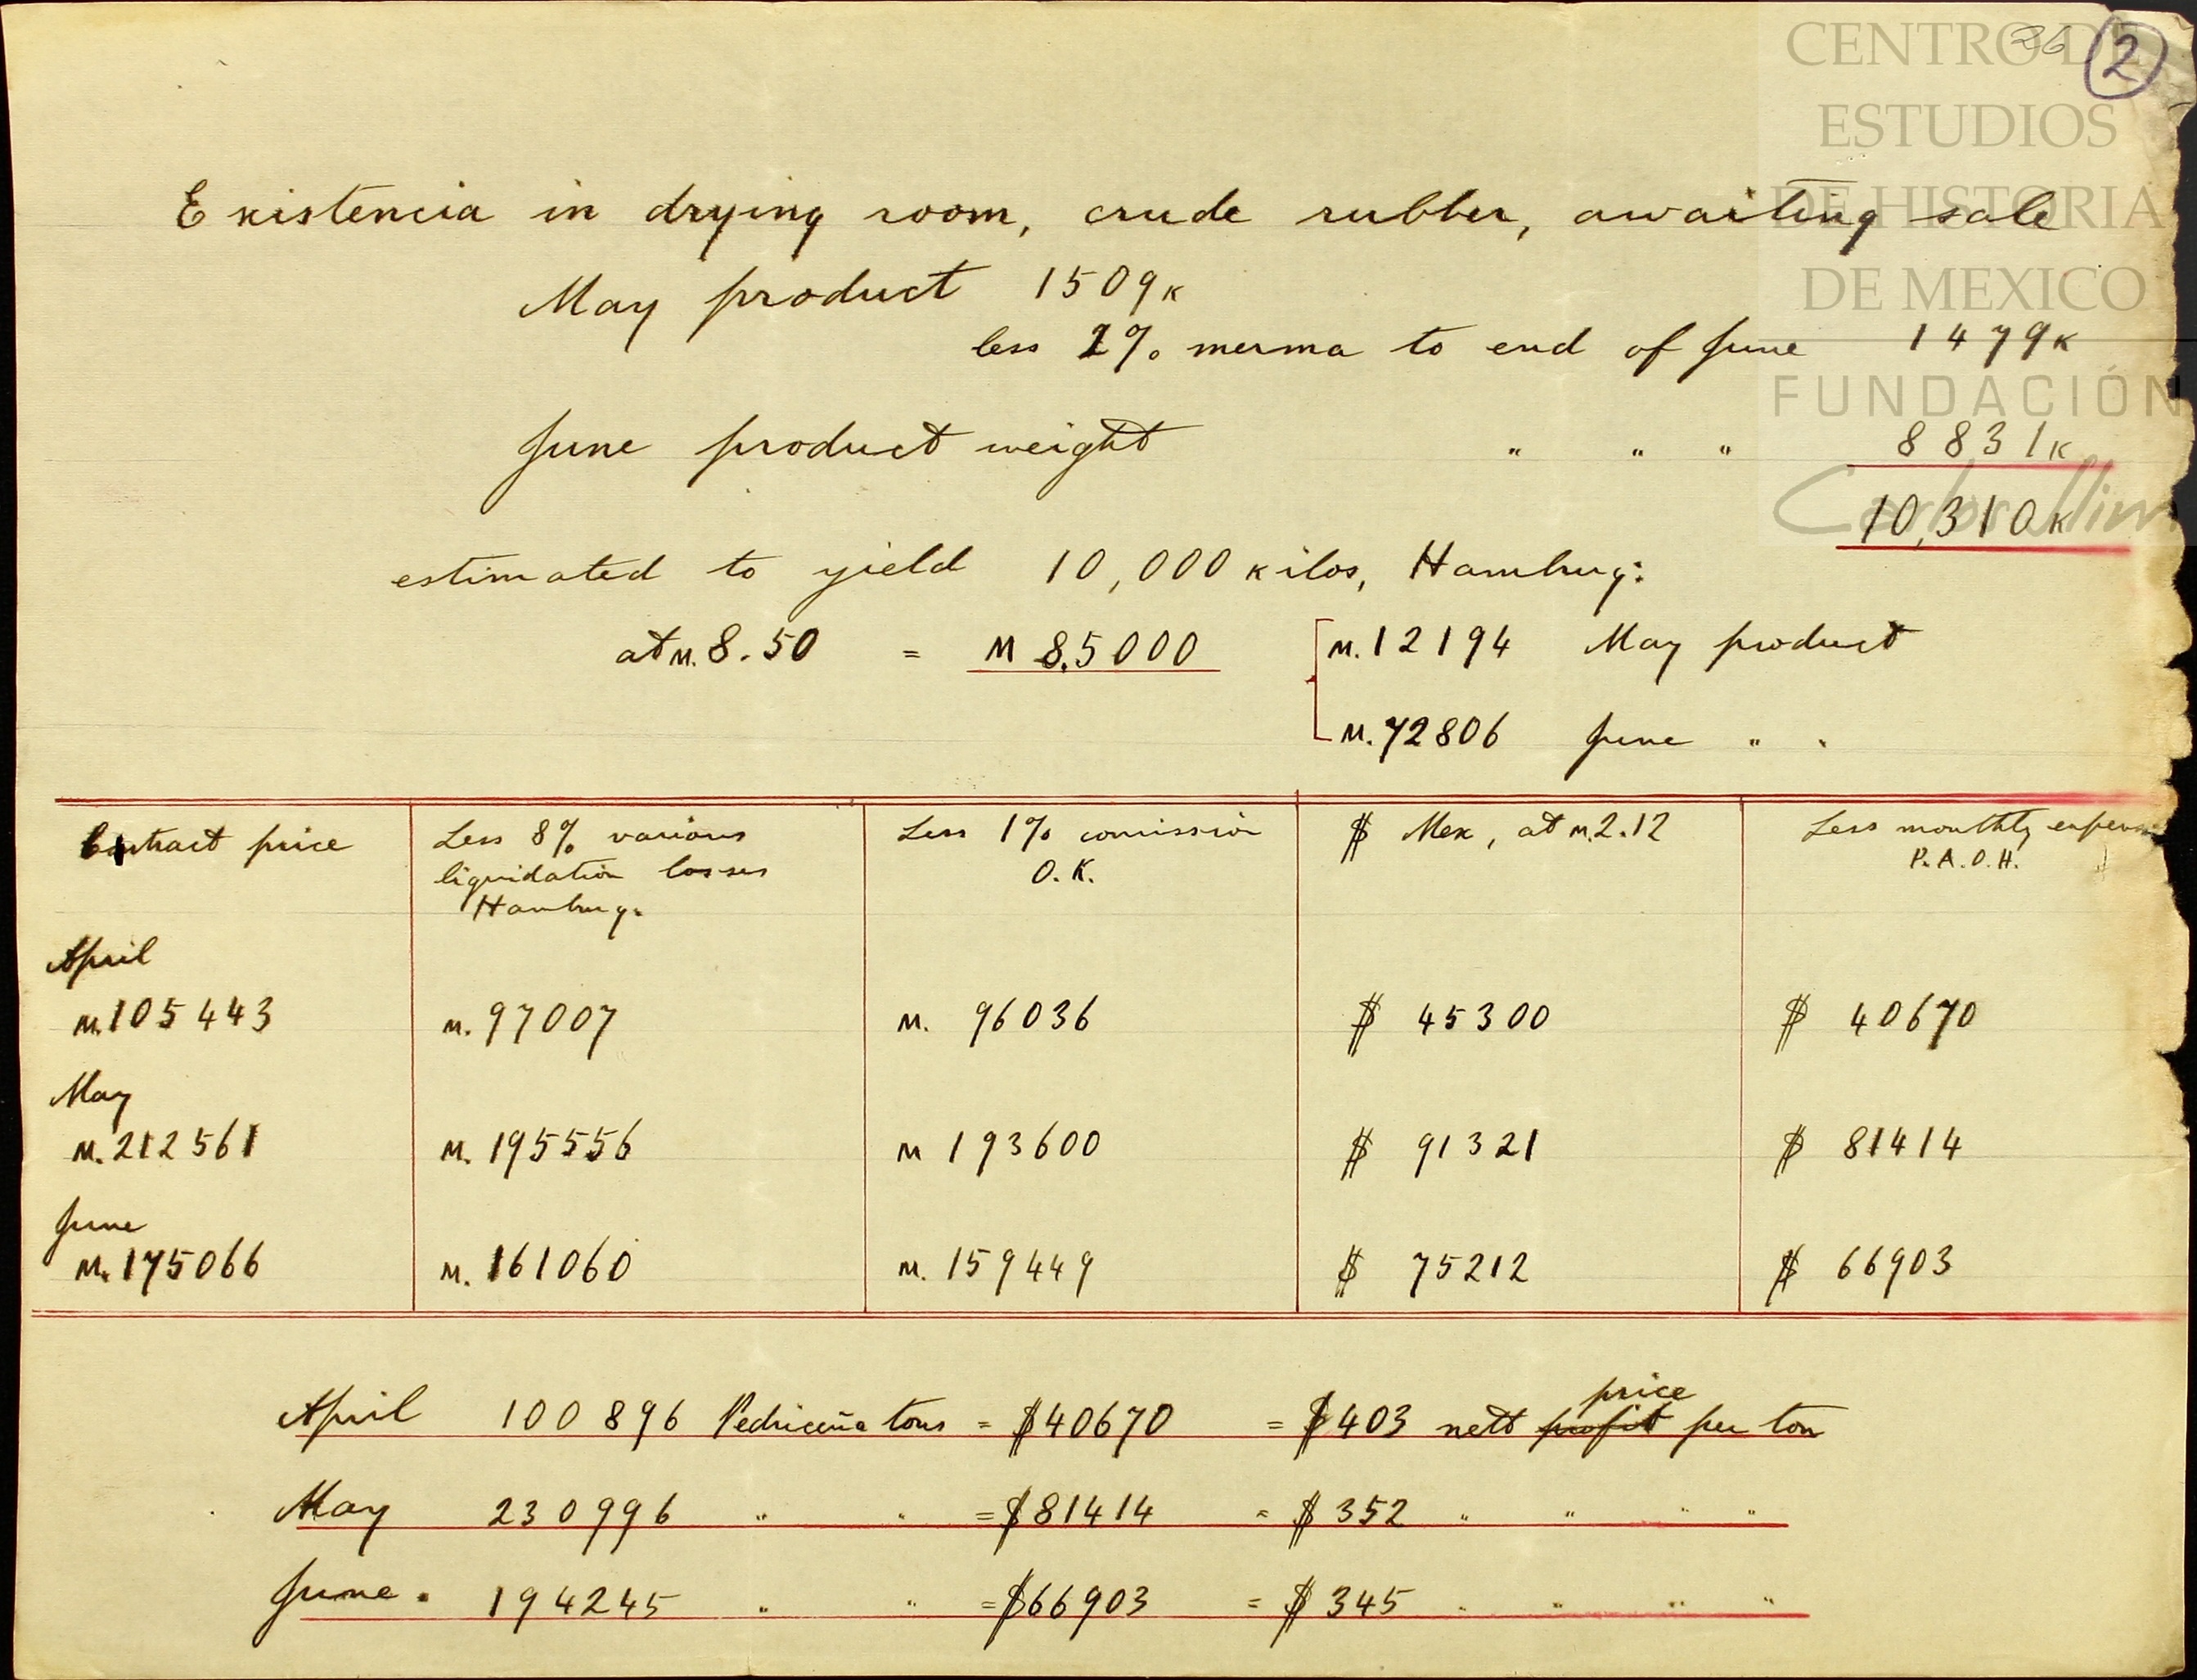 CENTRO DE
ESTUDIOS
DE HISTORIA
DE MEXICO
FUNDACIÓN
Carlos Slim
26 2
Existencia in drying room, crude rubber, awaiting sale
May product 1509 K
less 2% merma to end of June 1479 K
June product weight " " " 8831 K
10,310 K
estimated to yield 10,000 kilos, Hamburg:
at M. 8.50 = M 85000 M. 12194 May product
M. 72806 June " "
Contract price Less 8% various liquidation losses Hamburg. Less 1% comission O.K. $ Mex, at M. 2.12 Less monthly expens P.A.O.H.
April
M. 105443 M. 97007 M. 96036 $ 45300 $ 40670
May
M. 212561 M. 195556 M 193600 $ 91321 $ 81414
June
M. 175066 M. 161060 M. 159449 $ 75212 $ 66903
April 100896 Pedriceña tons = $40670 = $403 nett profit price per ton
May 230996 " " = $81414 = $352 " " " "
June. 194245 " " = $66903 = $345 " " " "